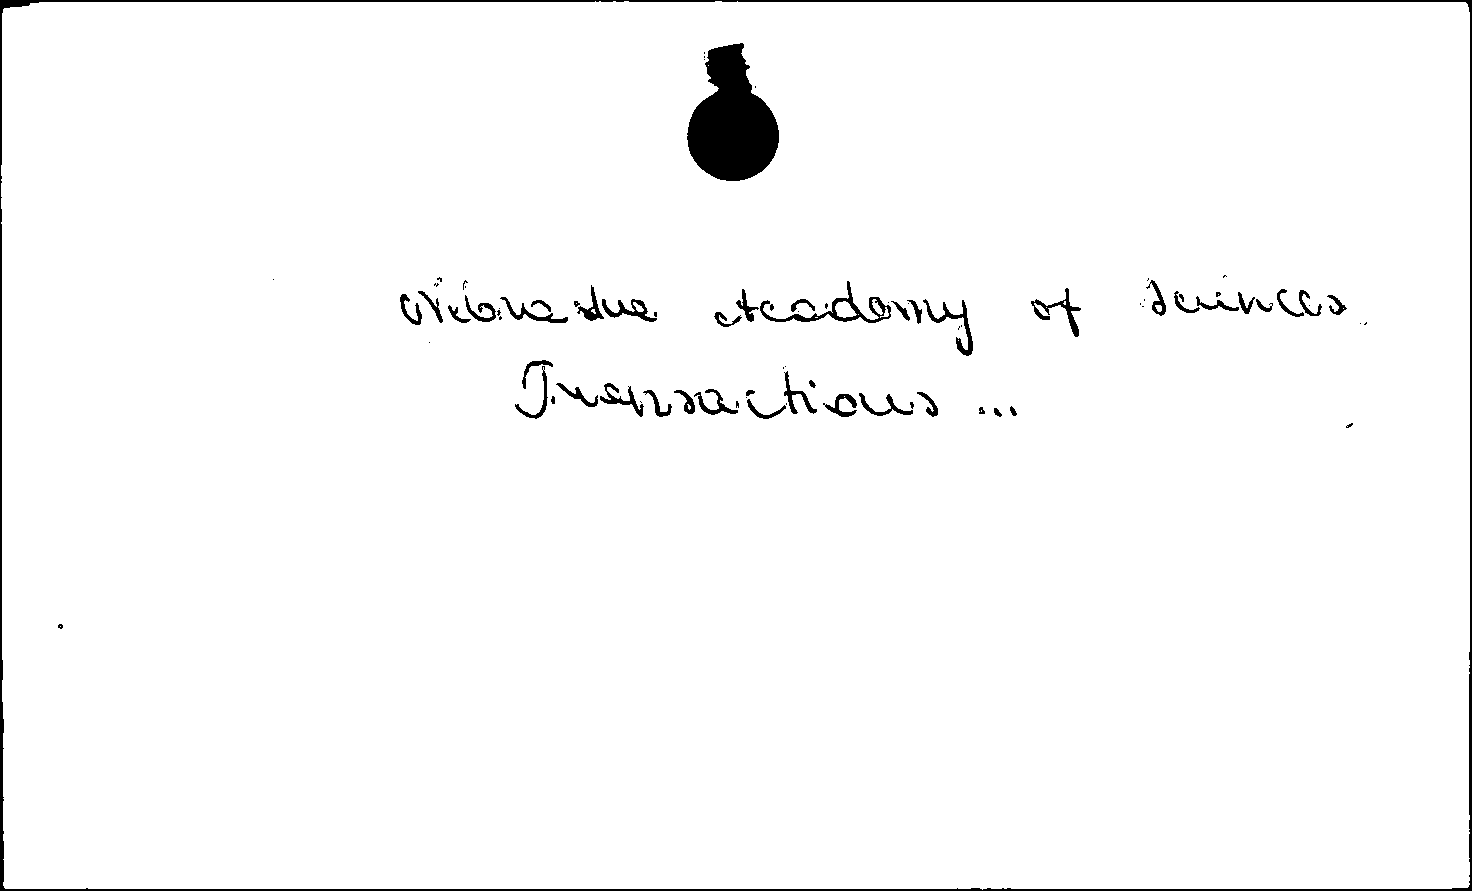 Nebraska Academy of Sciences
Transactions ...